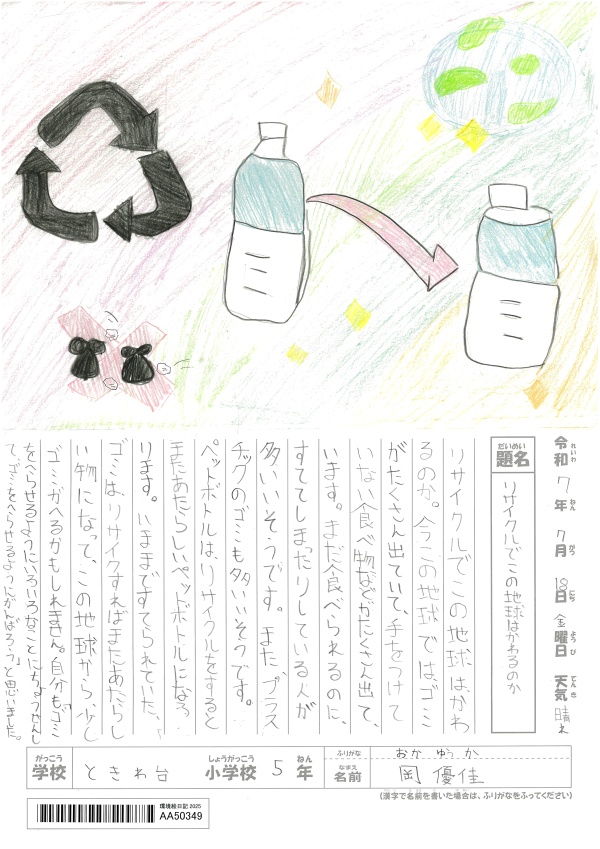 令和 7 年 7 月 18 日 金 曜日 天気 晴れ
れいわ ねん がつ にち ようび てんき
だいめい
題名
リサイクルでこの地球はかわるのか
リサイクルでこの地球は、かわ
るのか。今この地球では、ゴミ
がたくさん出ていて、手をつけて
いない食べ物などがたくさん出て、
います。まだ食べられるのに、
すててしまったりしている人が
多いいそうです。また、プラス
チックのゴミも多いいそうです。
ペットボトルは、リサイクルをすると
またあたらしいペットボトルになる
ります。いままですてられていた、
ゴミは、リサイクルすればまたあたらし
い物になって、この地球から、少し
ゴミがへるかもしれません。自分も「ゴミ
をへらせるようにいろいろなことにちょうせんし
て、ゴミをへらせるようにがんばろう」と思いました。
がっこう しょうがっこう ねん
学校 ときわ台 小学校 5 年
ふりがな おか ゆうか
なまえ
名前 岡 優佳
(漢字で名前を書いた場合は、ふりがなをふってください)
環境絵日記 2025
AA50349